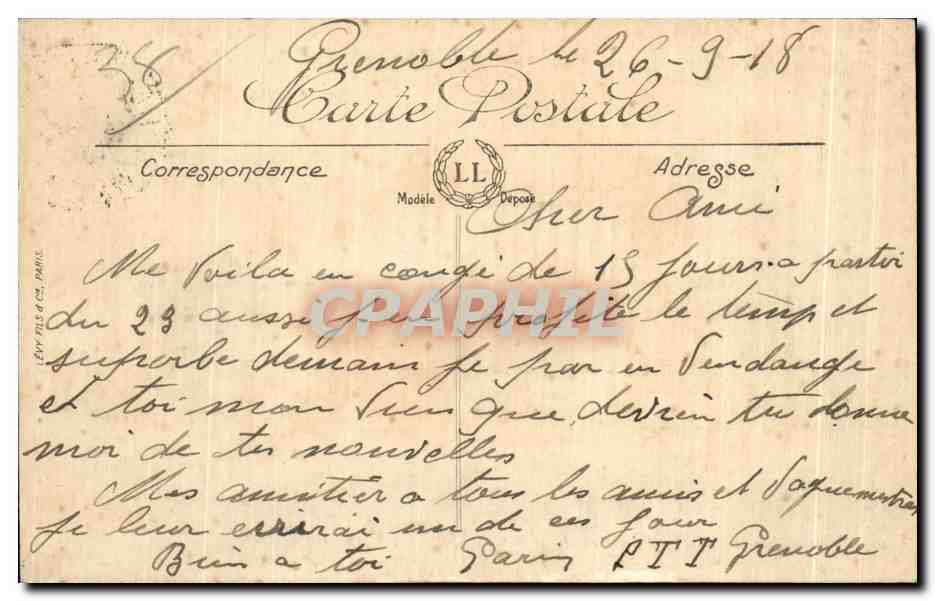 Grenoble le 26-9-18
38
Carte Postale
Correspondance
LL
Adresse
Modèle Déposé
Cher Ami
LÉVY FILS & Cie, PARIS.
Me Voila en congé de 15 jours a partir
du 23 aussi j'en profite le temp et
suporbe demain je par en Vendange
et toi mon Vieu que devien tu donne
moi de tes nouvelles
Mes amitier a tous les amis et Vaquemestres
je leur ecrirai un de ces jour
Bien a toi Garin PTT Grenoble
CPAPHIL